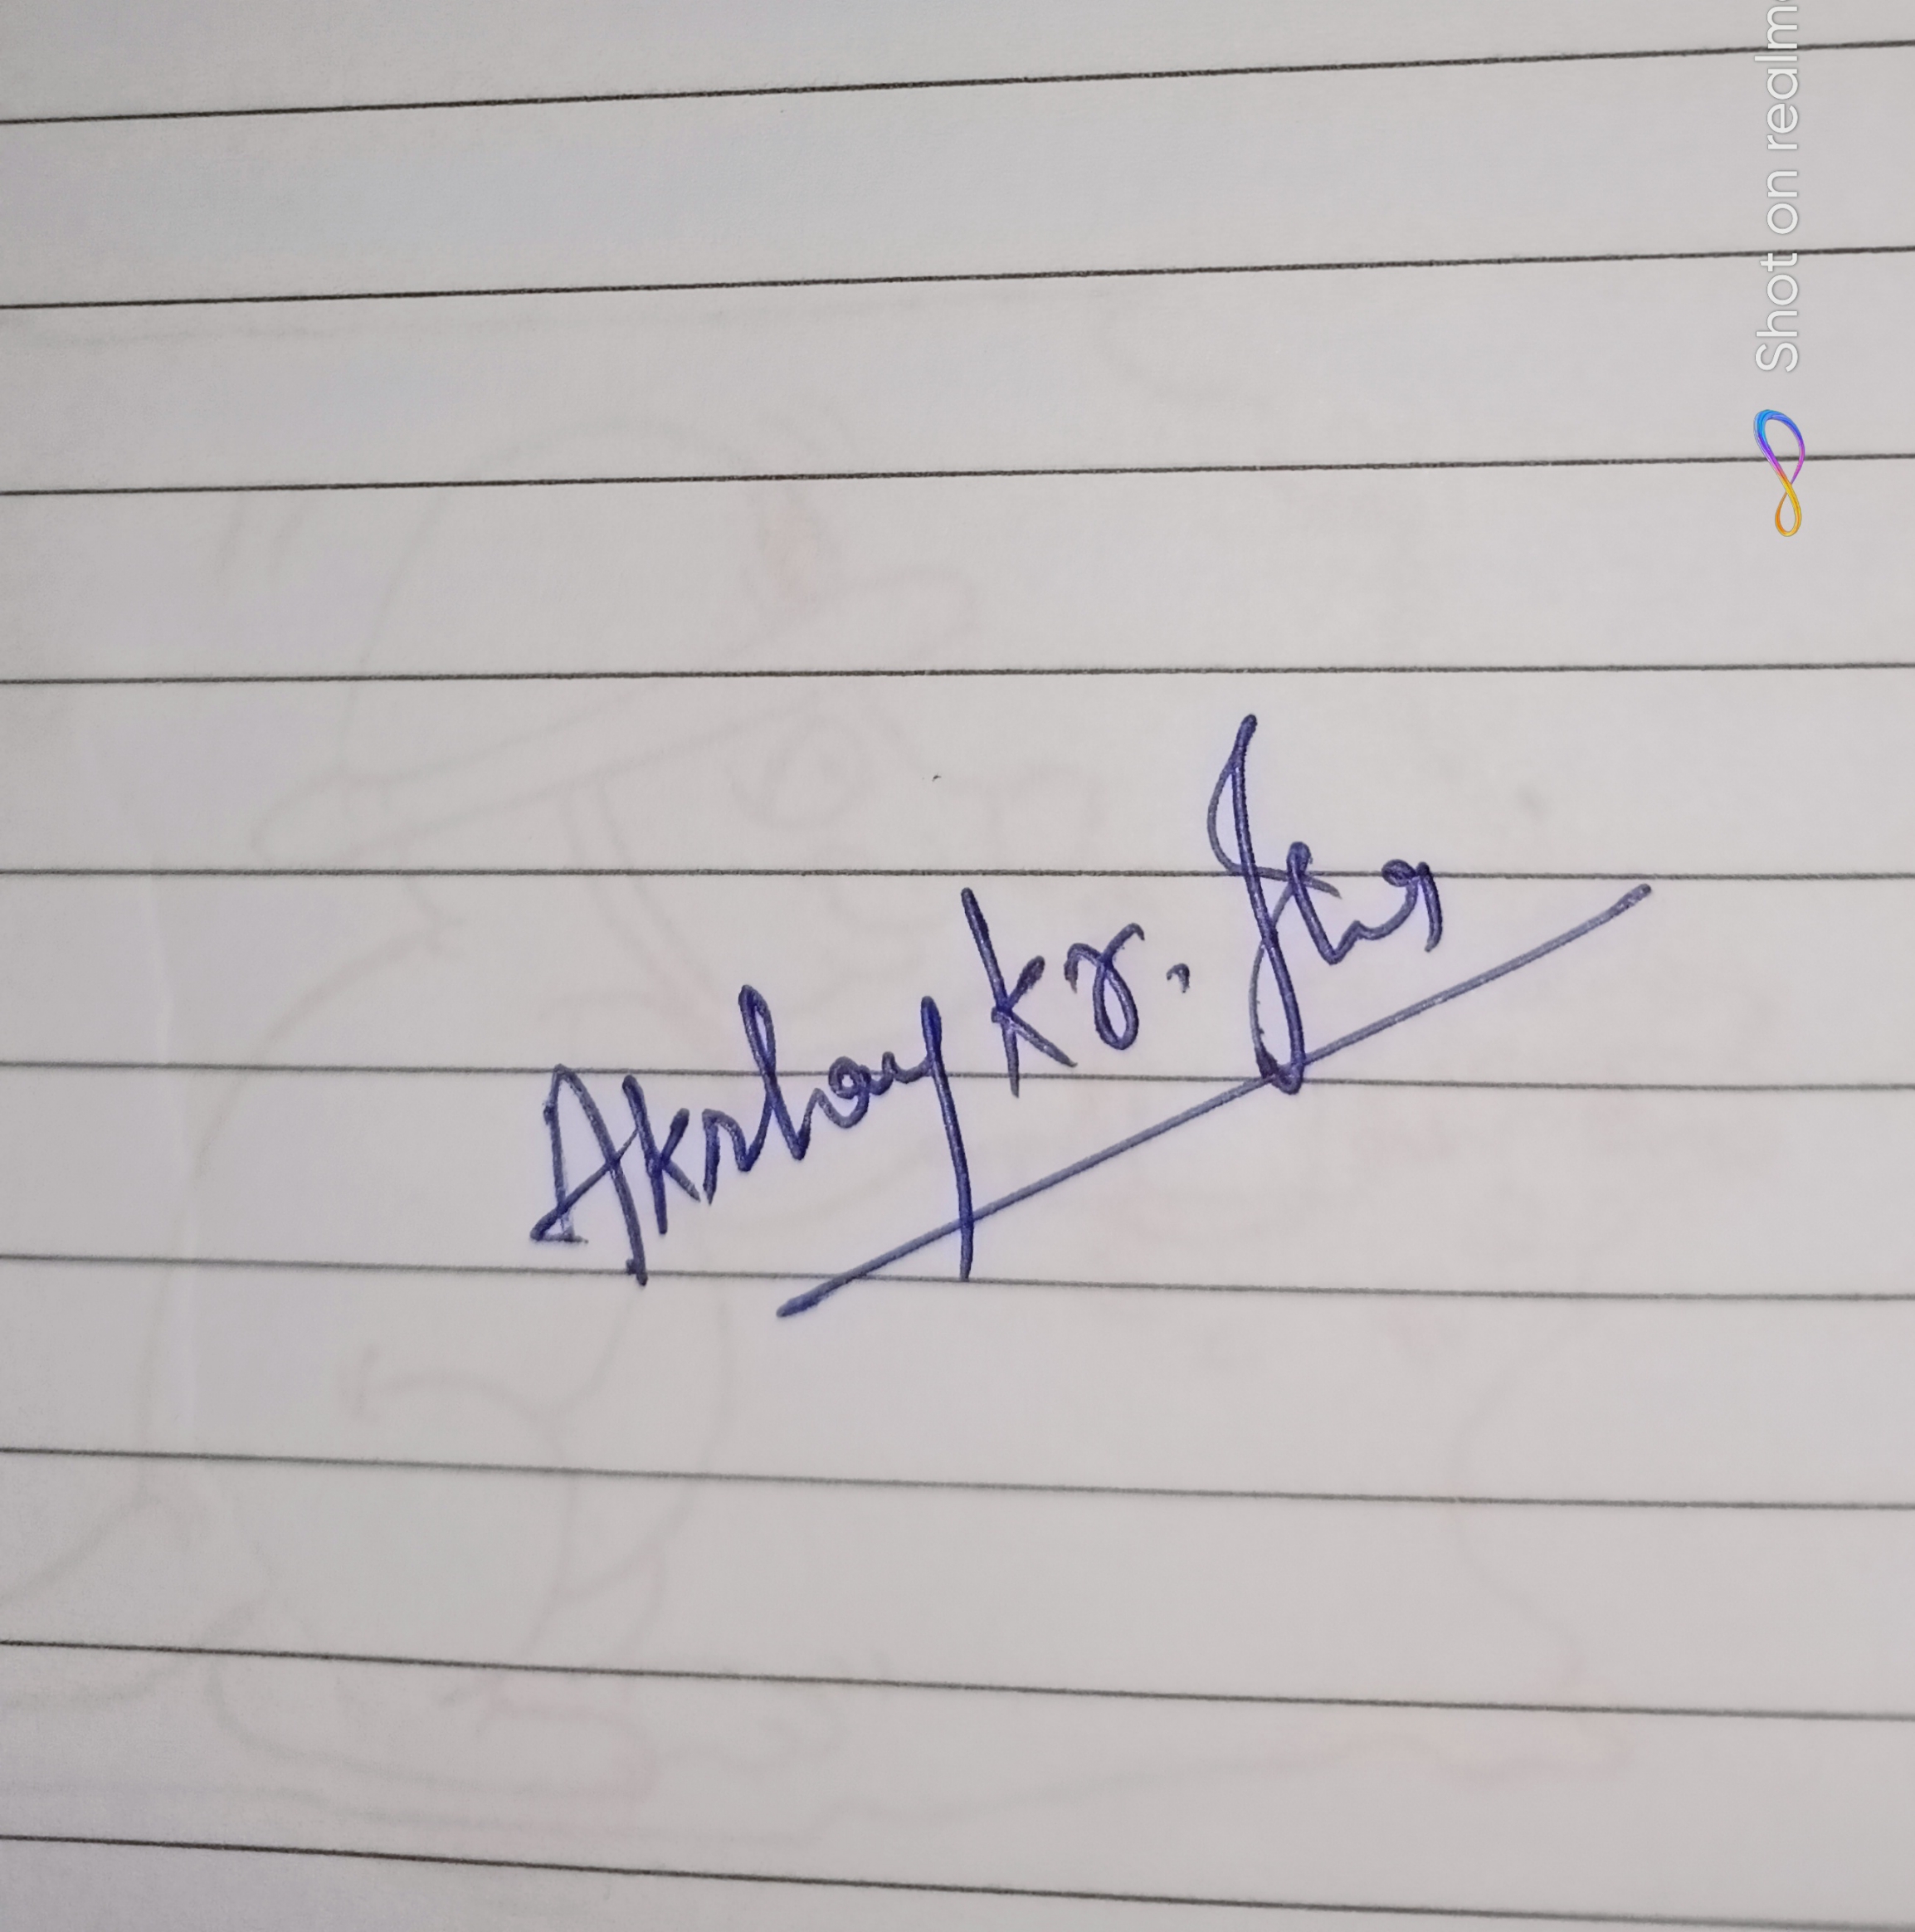 Akshay Kr. Jha
Shot on realm